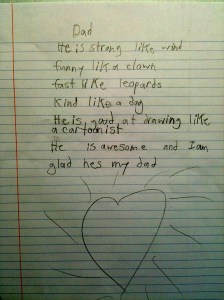 Dad
He is strong like wind
funny like a clown
fast like leopards
Kind like a dog
He is good at drawing like
a cartoonist
He is awesome and I am
glad hes my dad